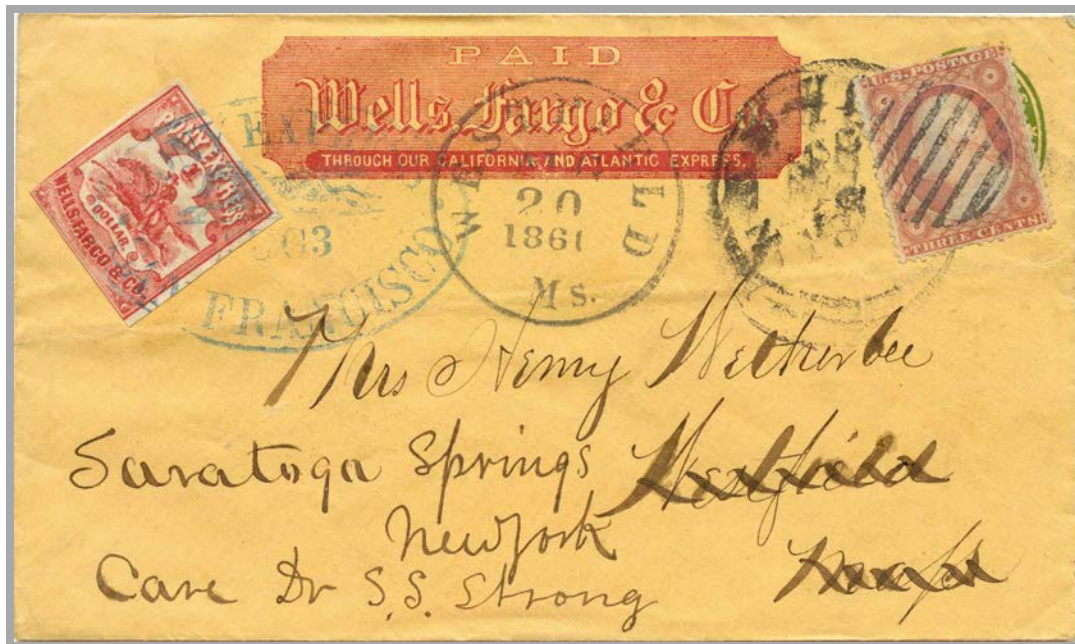 PAID
Wells Fargo & Co.
THROUGH OUR CALIFORNIA AND ATLANTIC EXPRESS.
PONY EXPRESS
1
DOLLAR
WELLS FARGO & CO.
FRANCISCO
20
1861
Ms.
U.S. POSTAGE
THREE CENTS
Mrs Henry Wetherbee
Saratoga Springs Westfield
New York
Care Dr S.S. Strong